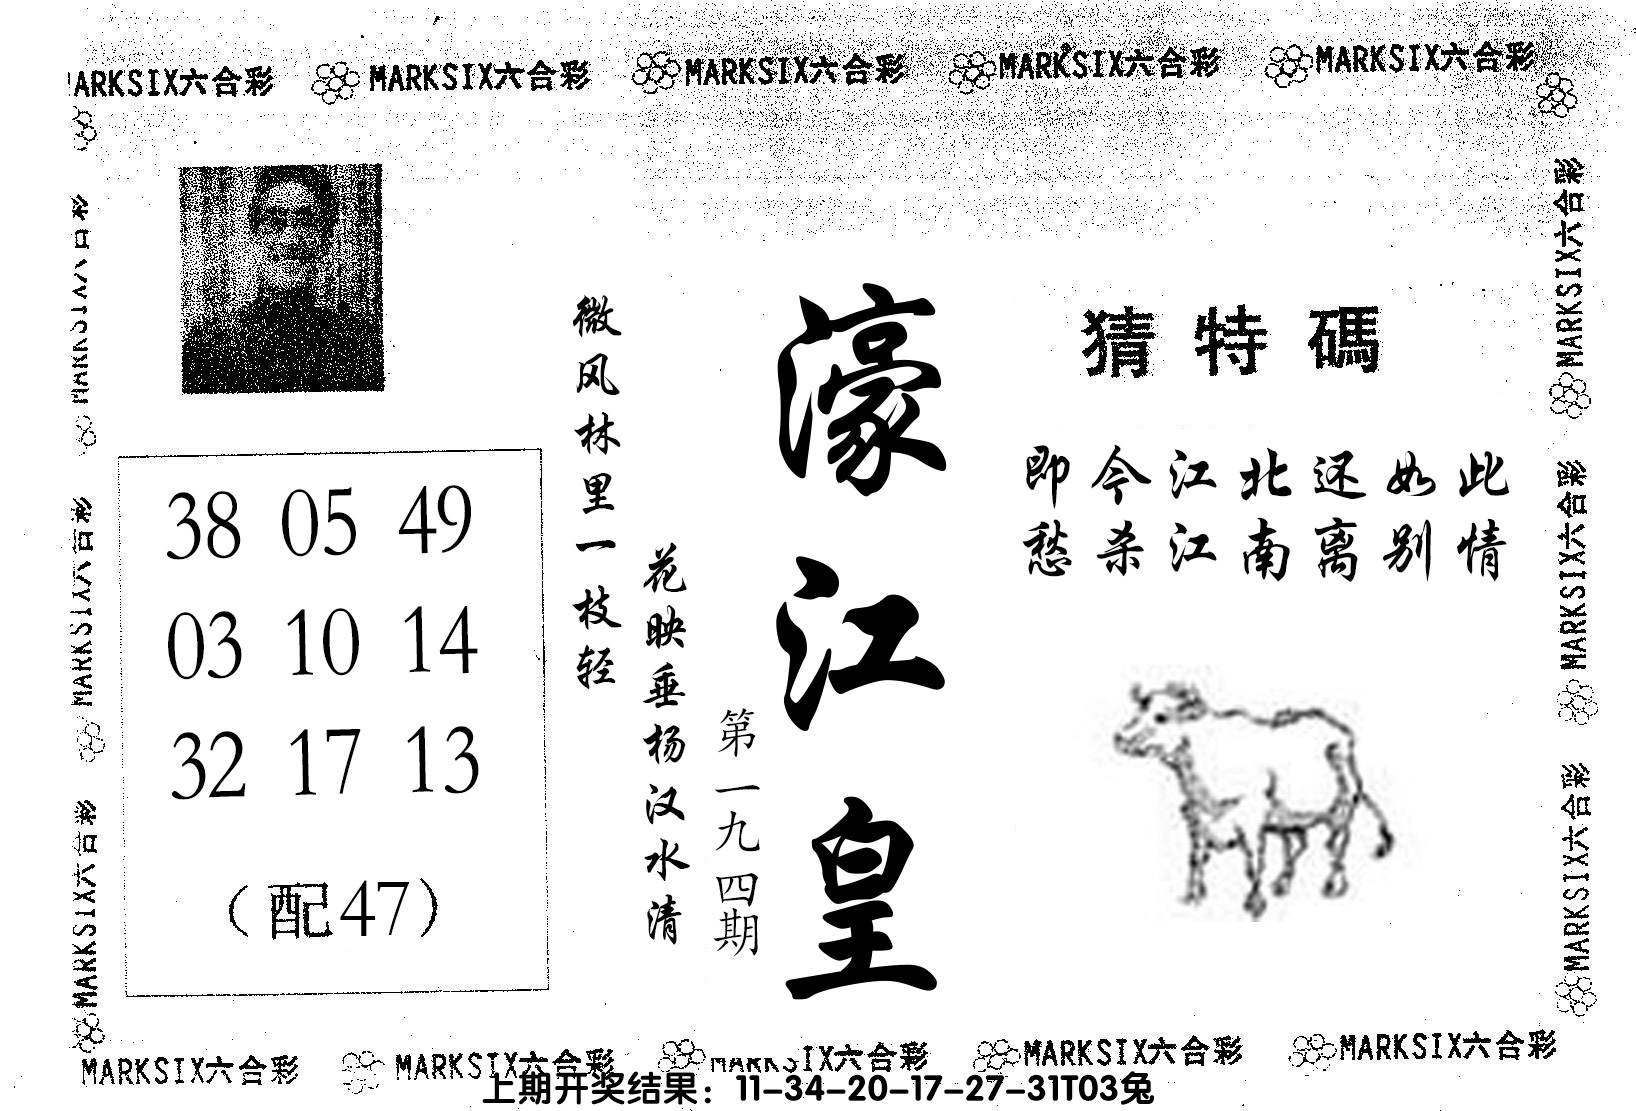 MARKSIX六合彩 MARKSIX六合彩 MARKSIX六合彩 MARKSIX六合彩 MARKSIX六合彩
猜特碼
即今江北还如此
愁杀江南离别情
濠江皇
第一九四期
微风林里一枝轻
花映垂杨汉水清
38 05 49
03 10 14
32 17 13
（配47）
MARKSIX六合彩
MARKSIX六合彩
MARKSIX六合彩
MARKSIX六合彩
MARKSIX六合彩
MARKSIX六合彩
MARKSIX六合彩 MARKSIX六合彩 MARKSIX六合彩 MARKSIX六合彩 MARKSIX六合彩
上期开奖结果：11-34-20-17-27-31T03兔